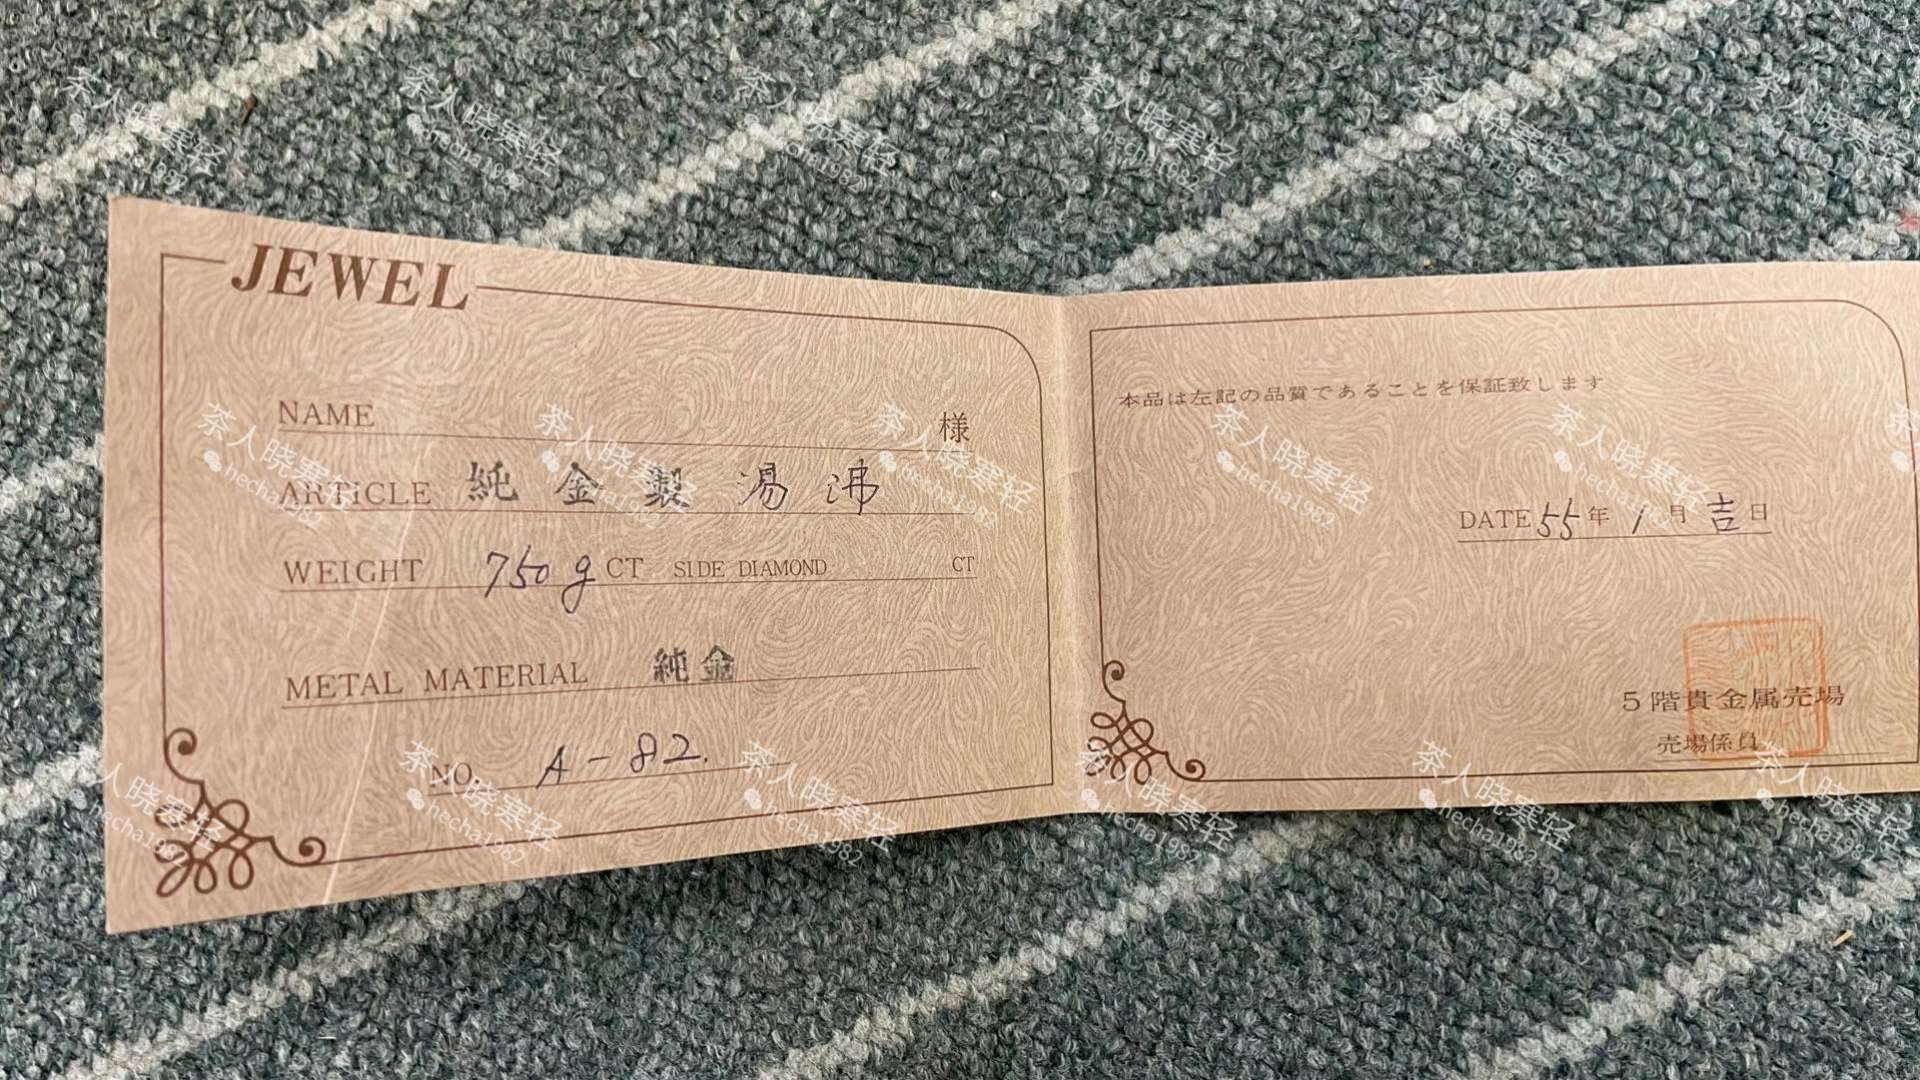 JEWEL
NAME 様
ARTICLE 純金製湯沸
WEIGHT 750g CT SIDE DIAMOND CT
METAL MATERIAL 純金
NO. A-82.
本品は左記の品質であることを保証致します
DATE 55年1月吉日
5階貴金属売場
売場係員
茶人晓寒轻
hecha1982